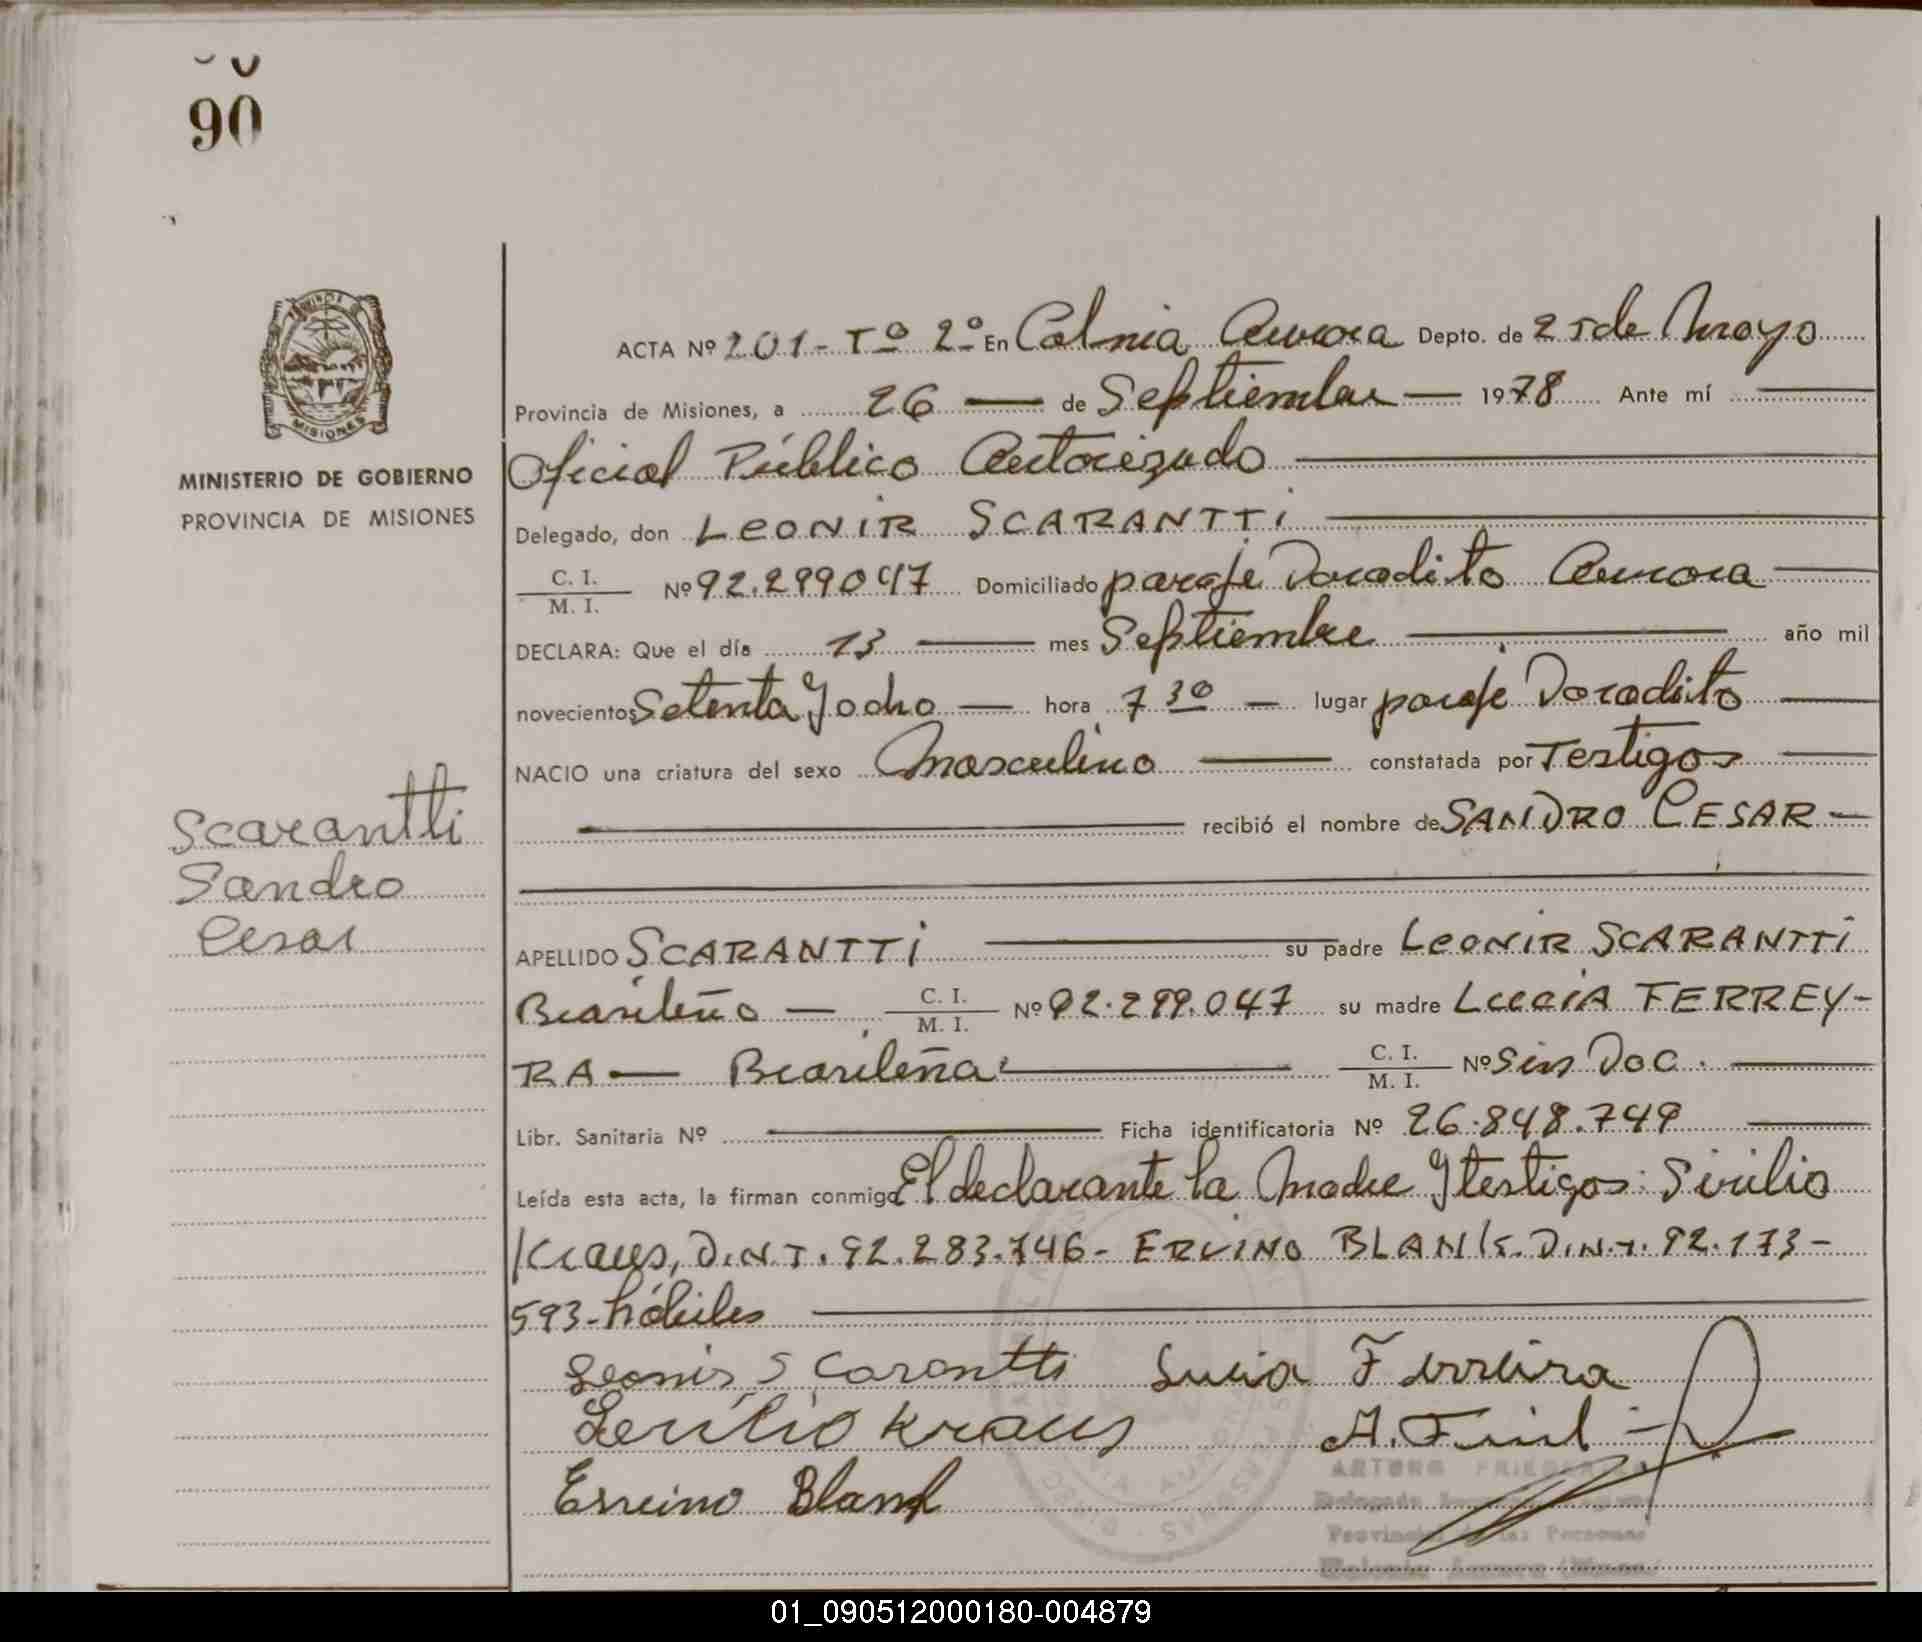 90
PROVINCIA DE
MISIONES
MINISTERIO DE GOBIERNO
PROVINCIA DE MISIONES
Scarantti
Sandro
Cesar
ACTA Nº 201- Tº 2º En Colnia Aurora Depto. de 25 de Mayo
Provincia de Misiones, a 26 — de Septiembre — 1978 Ante mí
Oficial Público Autorizado
Delegado, don LEONIR SCARANTTI
C. I. / M. I. Nº 92.299047 Domiciliado paraje Doradito Aurora
DECLARA: Que el día 13 — mes Septiembre — año mil
novecientos Setenta Y ocho — hora 7 30 — lugar paraje Doradito —
NACIO una criatura del sexo Masculino — constatada por Testigos —
— recibió el nombre de SANDRO CESAR —
APELLIDO SCARANTTI — su padre LEONIR SCARANTTI
Brasileño — C. I. / M. I. Nº 92.299.047 su madre LUCIA FERREY-
RA — Brasileña — C. I. / M. I. Nº Sin Doc. —
Libr. Sanitaria Nº — Ficha identificatoria Nº 26.848.749 —
Leída esta acta, la firman conmigo El declarante la Madre Y testigos: Sirilio
Kraus, D.N.I. 92.283.746- ERVINO BLANK. D.N.I. 92.173-
593- hábiles —
Leonir Scarantti Lucia Ferreira
Kraus A.
Blank
ARTURO
Delegado
Provincial de las Personas
Colonia Aurora
01_090512000180-004879